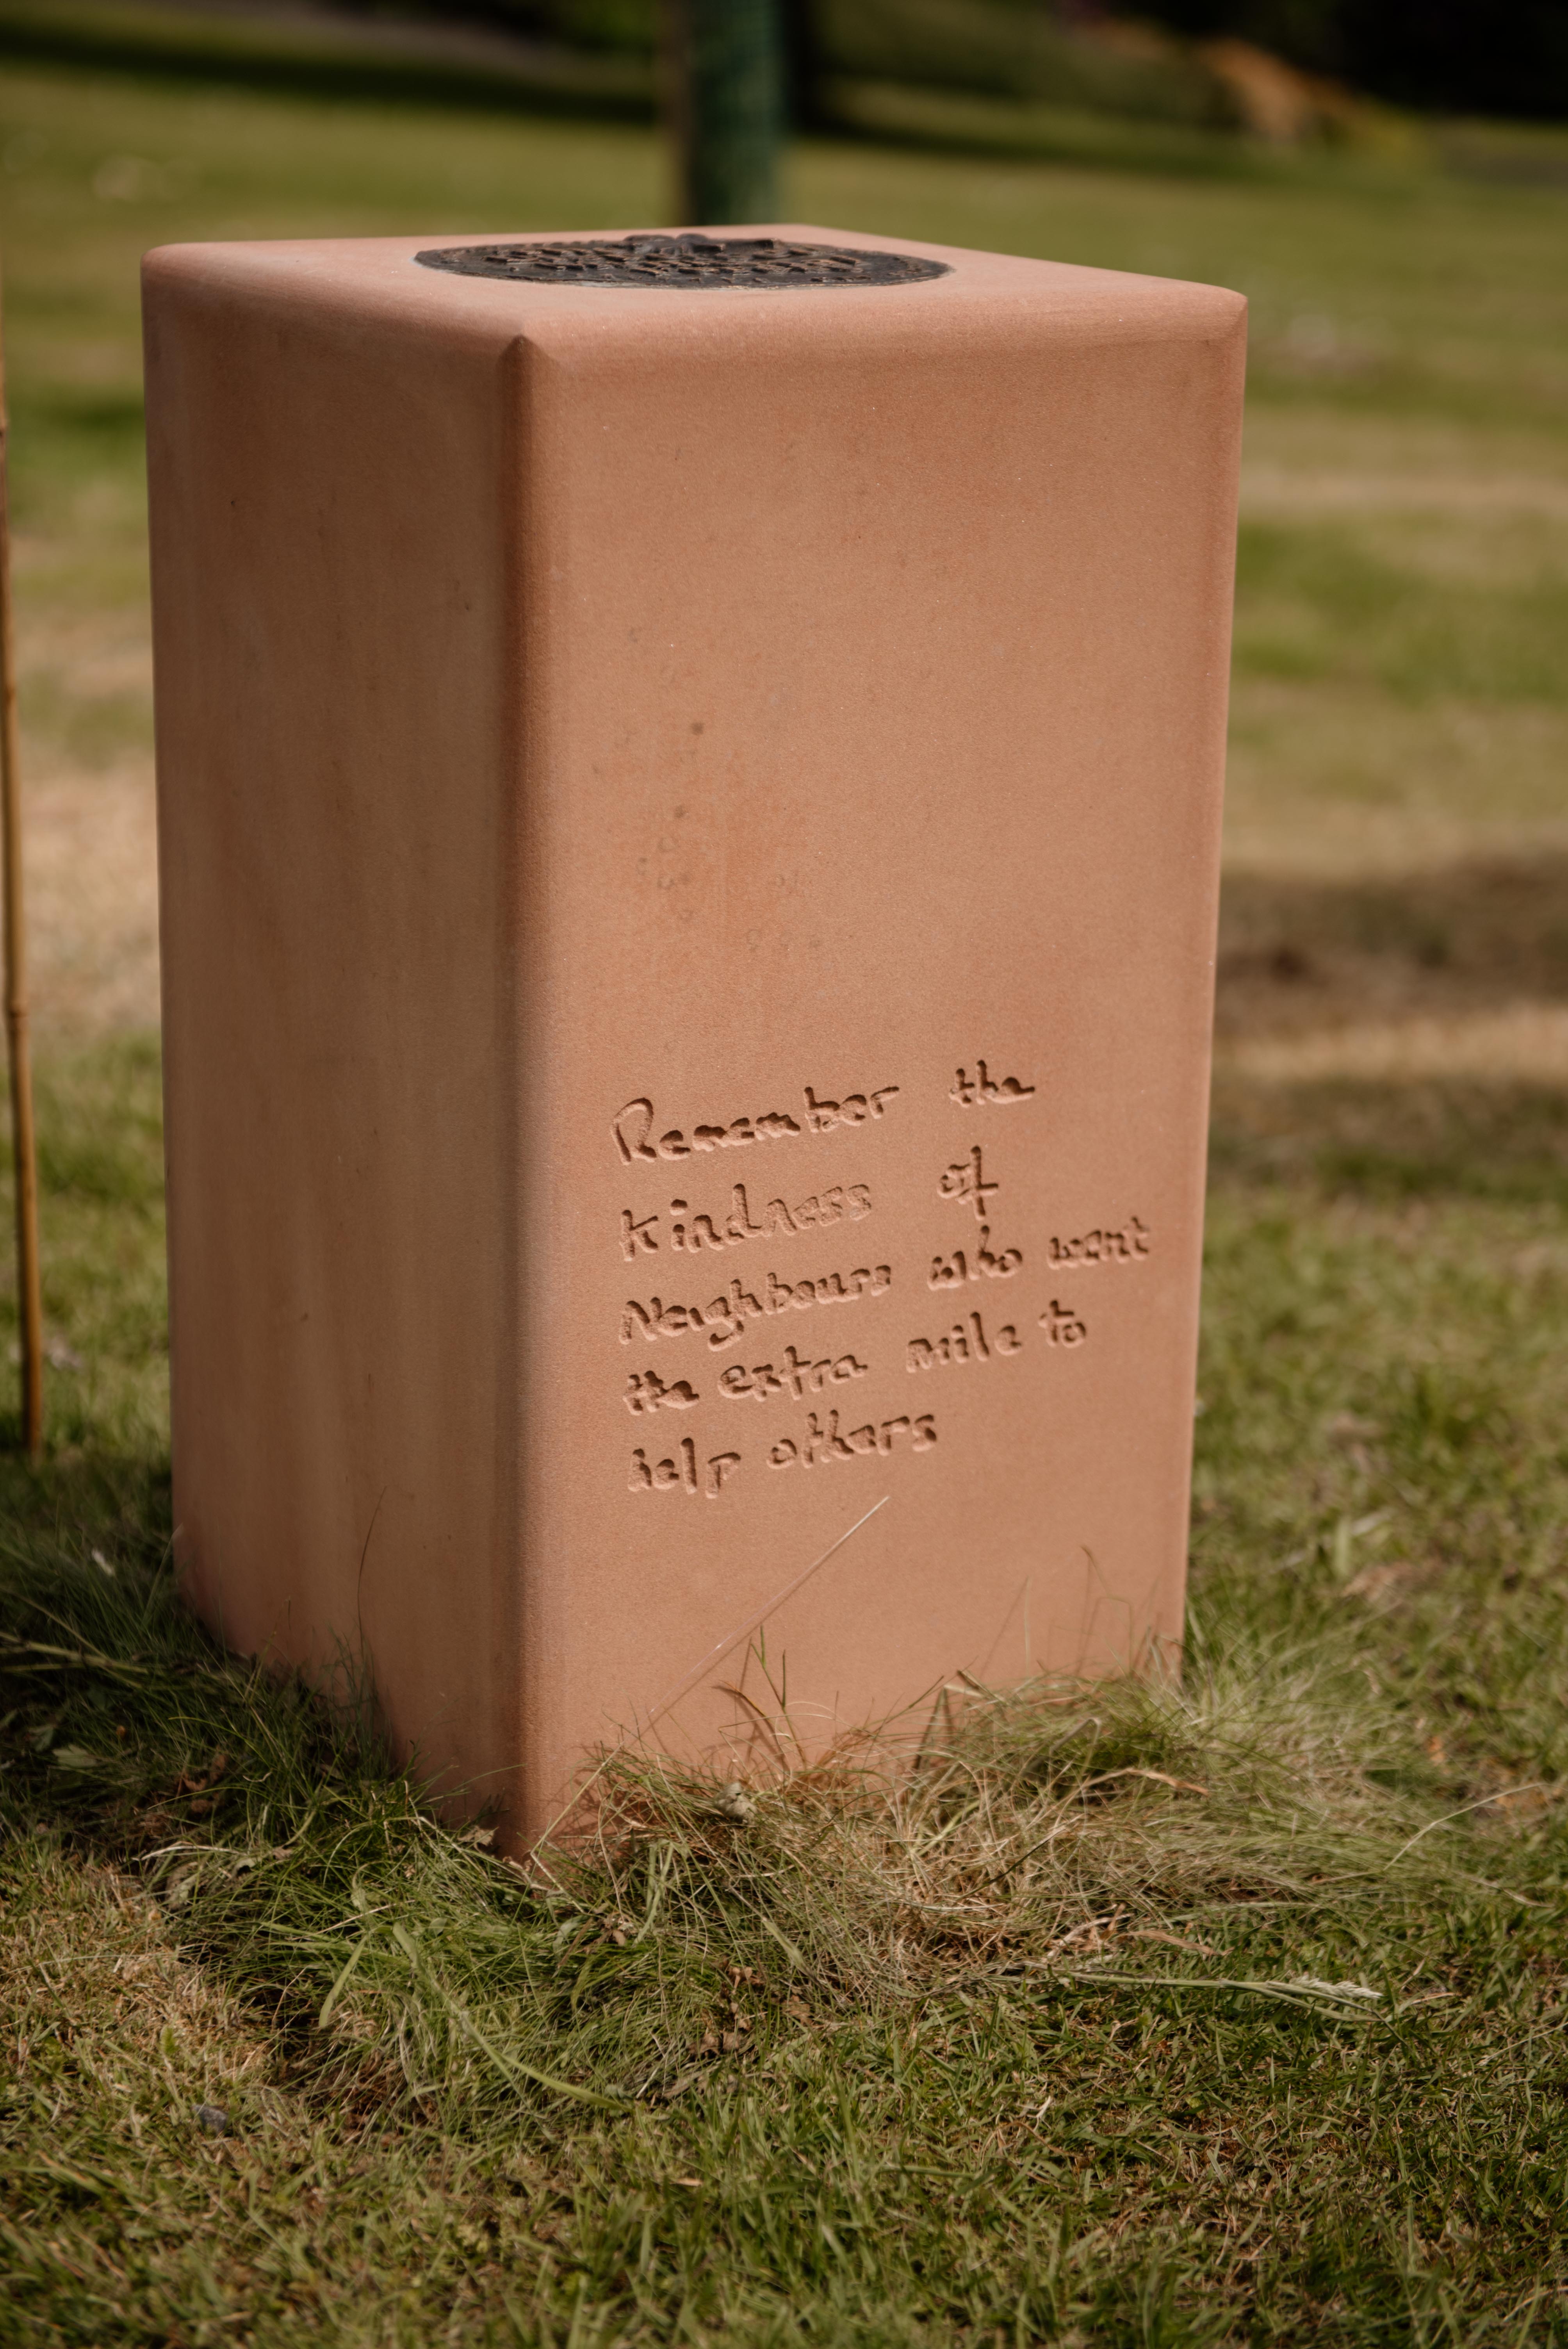 Remember the
kindness of
Neighbours who went
the extra mile to
help others